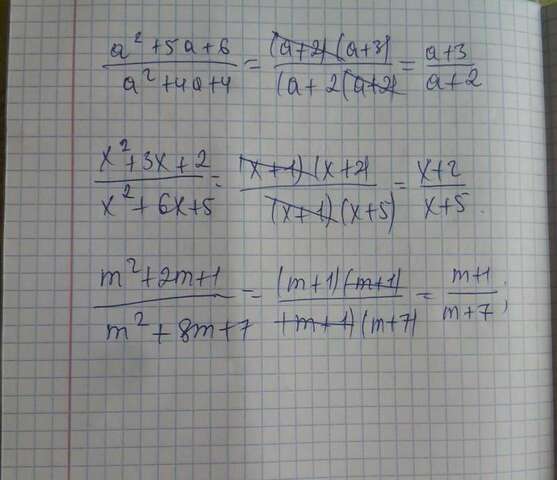 (a²+5a+6)/(a²+4a+4) = ((a+2)(a+3))/((a+2(a+2)) = (a+3)/(a+2)
(x²+3x+2)/(x²+6x+5) = ((x+1)(x+2))/((x+1)(x+5)) = (x+2)/(x+5).
(m²+2m+1)/(m²+8m+7) = ((m+1)(m+1))/((m+1)(m+7)) = (m+1)/(m+7);